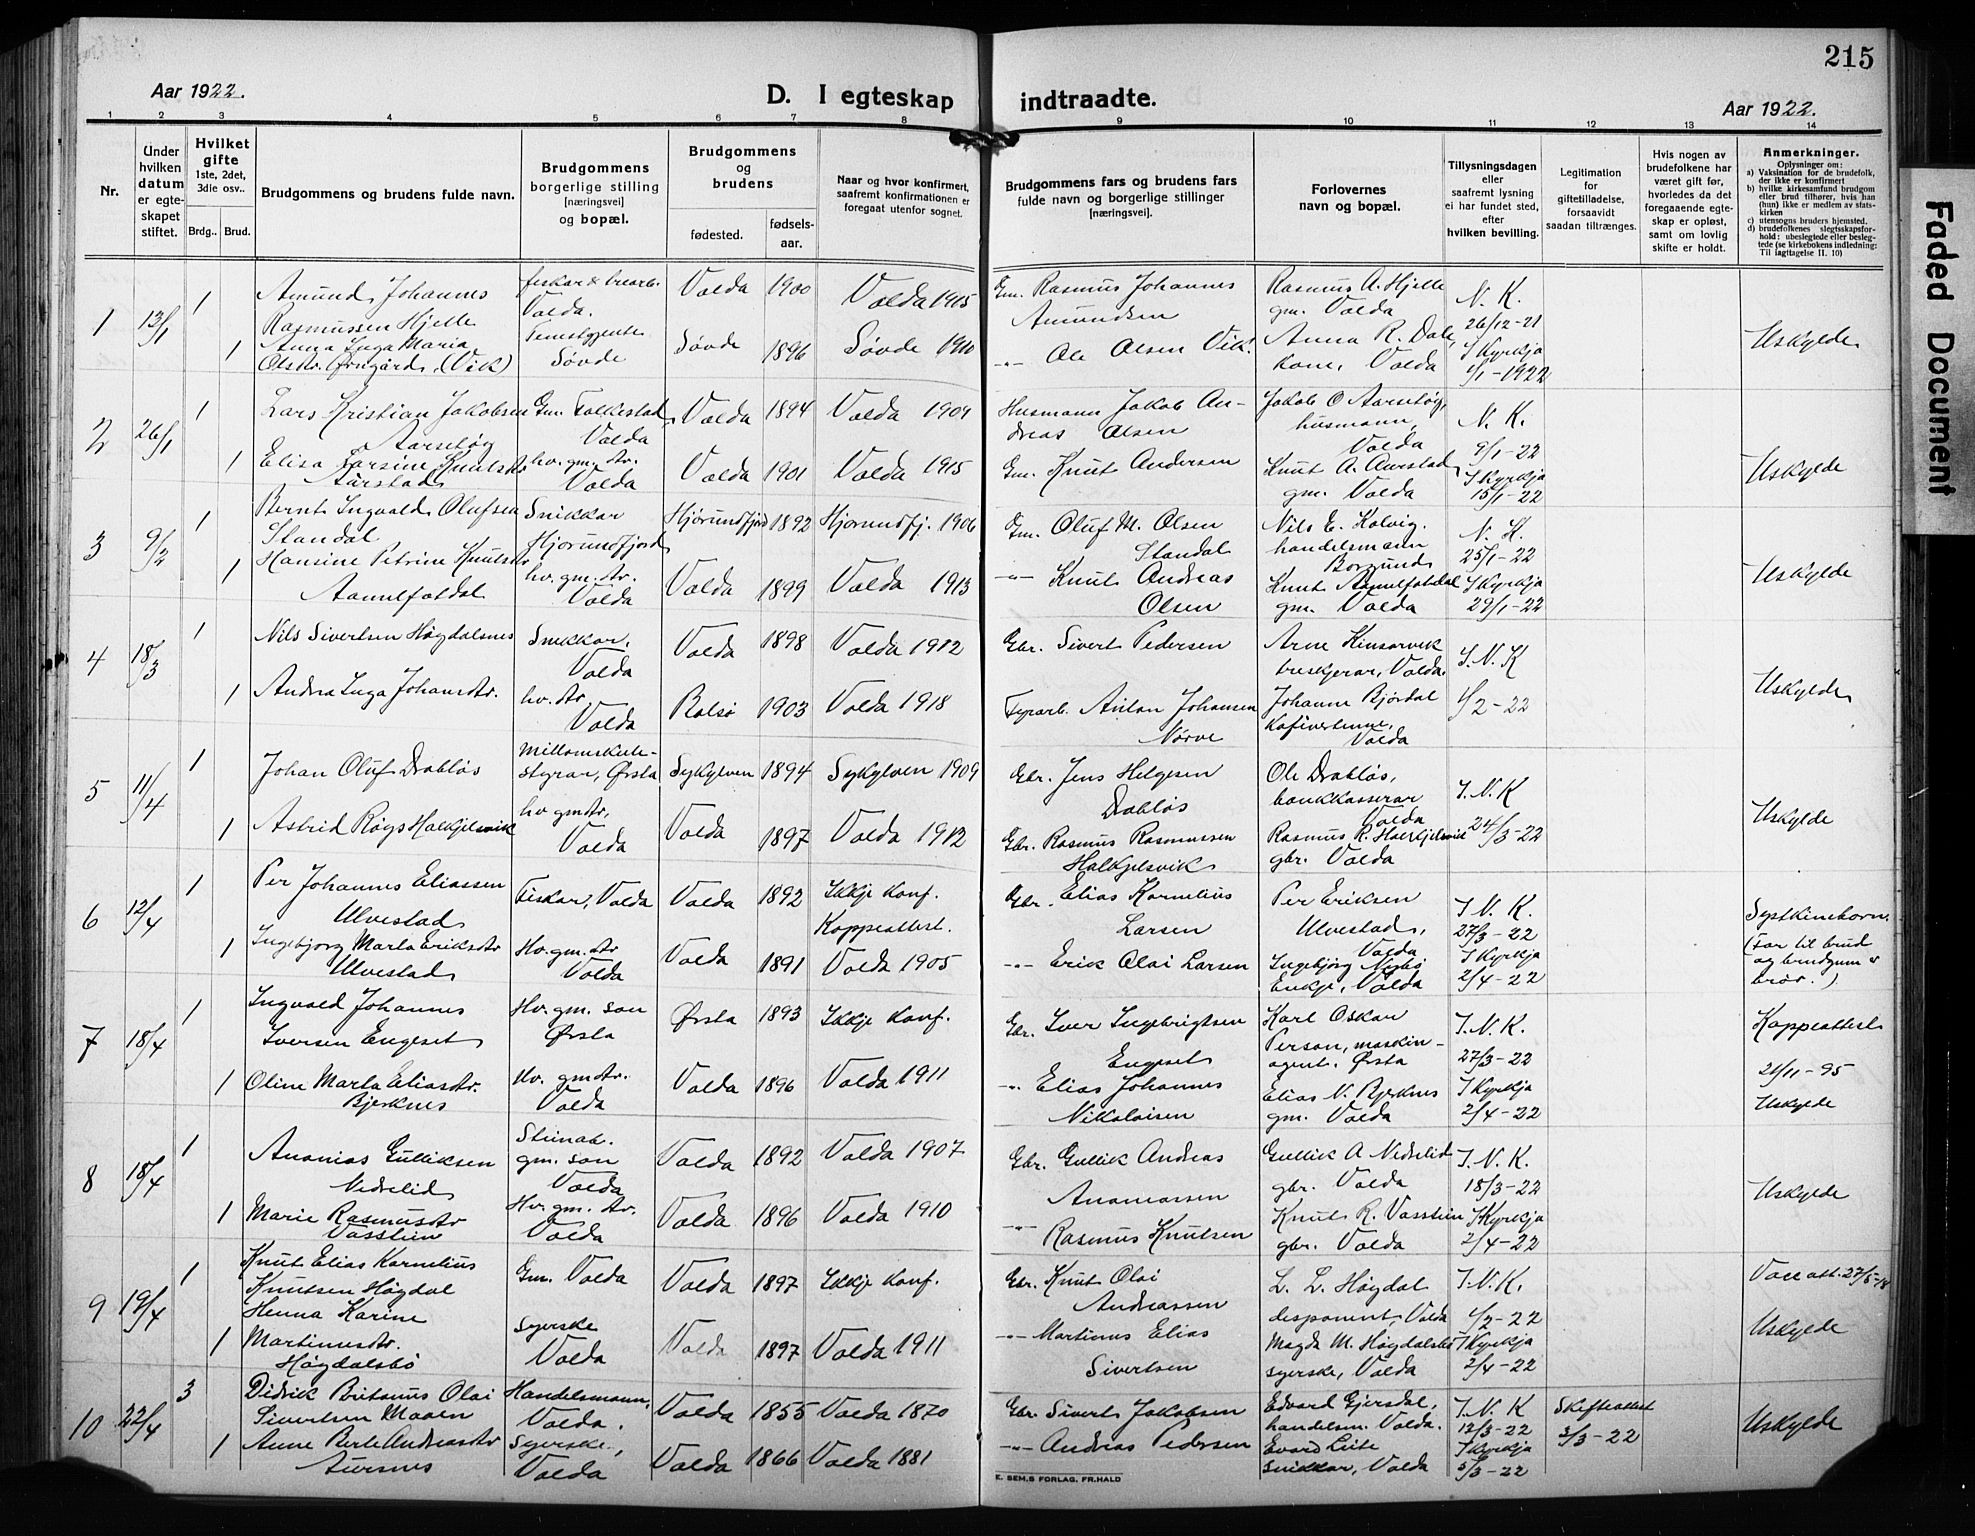 215
Aar 1922.
D. I egteskap indtraadte.
Aar 1922.
1 2 3 4 5 6 7 8 9 10 11 12 13 14
Nr.
Under hvilken datum er egteskapet stiftet.
Hvilket gifte 1ste, 2det, 3die osv..
Brdg.. Brud.
Brudgommens og brudens fulde navn.
Brudgommens borgerlige stilling [næringsvei] og bopæl.
Brudgommens og brudens
fødested.
fødsels-aar.
Naar og hvor konfirmert, saafremt konfirmationen er foregaat utenfor sognet.
Brudgommens fars og brudens fars fulde navn og borgerlige stillinger [næringsvei].
Forlovernes navn og bopæl.
Tillysningsdagen eller saafremt lysning ei har fundet sted, efter hvilken bevilling.
Legitimation for giftetilladelse, forsaavidt saadan tiltrænges.
Hvis nogen av brudefolkene har været gift før, hvorledes da det foregaaende egteskap er opløst, samt om lovlig skifte er holdt.
Anmerkninger.
Oplysninger om:
a) Vaksination for de brudefolk, der ikke er konfirmert
b) hvilke kirkesamfund brudgom eller brud tilhører, hvis han (hun) ikke er medlem av statskirken
c) utensogns bruders hjemsted.
d) brudefolkenes slegtsskapsforhold: ubeslegtede eller beslegtede (se kirkebokens indledning: Til iagttagelse II. 10)
1 13/1 1 Amund Johannes Rasmussen Hjelle
Volda.
Volda 1900 Volda 1915
Gm. Rasmus Johannes Amundsen
Rasmus A. Hjelle gm. Volda
N. K. 26/12-21
1 Anna Inga Maria Olsdtr. Ørngård, (Vik)
Søvde
Søvde 1896 Søvde 1910
-"- Ole Olsen Vik.
Anna R. Dale, kone, Volda
I Kyrkja 1/1-1922
Uskylde
2 26/1 1 Lars Kristian Jakobsen Aarsetøg
Gm. Folkestad, Volda
Volda 1894 Volda 1909
Husmann Jakob Andreas Olsen
Jakob O Aarsetøg, husmann, Volda
N. K. 9/1-22
1 Elisa Larsine Knutsdtr Aarstad
hv. gm. dtr. Volda
Volda 1901 Volda 1915
Gm. Knut Andersen
Knut A. Aarstad, gm. Volda
I Kyrkja 15/1-22
Uskylde
3 9/2 1 Bernt Ingvald Olufsen Standal
Snikkar Hjørundfjord
Hjørundfjord 1892 Hjørundfj. 1906
Gm. Oluf M. Olsen Standal
Nils E. Kolvig. handelsmann Borgund
N. K. 25/1-22
1 Hansine Petrine Knutsdtr Aamelfotdal
hv. gm. dtr. Volda
Volda 1899 Volda 1913
-"- Knut Andreas Olsen
Knut Aamelfotdal gm. Volda
I Kyrkja 29/1-22
Uskylde
4 18/3 1 Nils Sivertsen Høgdalsnes
Snikkar, Volda
Volda 1898 Volda 1912
Gbr. Sivert Pedersen
Arne Kinsarvik, Volda.
I. N. K
1 Andrea Inga Johansdtr.
hv. dtr Volda
Bolsø 1903 Volda 1918
Fyrarb. Anton Johansen Nørve
Johanne Bjørdal Kafivertinne, Volda
1/2-22
Uskylde
5 11/4 1 Johan Oluf Drabløs
Millomskulestyrar, Ørsta
Sykylven 1894 Sykylven 1909
Gbr. Jens Helgesen Drabløs
Ole Drabløs, bankkasserar Volda
I. N. K
1 Astrid Røys Halkjelsvik
hv gmdtr, Volda
Volda 1897 Volda 1912
Gbr. Rasmus Rasmussen Halkjelsvik
Rasmus R. Halkjelsvik gbr. Volda
24/3-22
Uskylde
6 12/4 1 Per Johannes Eliassen Ulvestad
Fiskar, Volda
Volda 1892 Ikkje konf. Koppeattest.
Gbr. Elias Kornelius Larsen
Per Eriksen Ulvestad, Volda
I N. K. 27/3-22
1 Ingebjørg Marta Eriksdtr Ulvestad
Hv. gm. dtr Volda
Volda 1891 Volda 1905
-"- Erik Olai Larsen
Ingebjørg Nesbø Enkje, Volda
I Kyrkja 2/4-22
Systkineborn. (Far til brud og brudgum er brør.)
7 18/4 1 Ingvald Johannes Iversen Engeset
Hv. gm. son Ørsta
Ørsta 1893 Ikkje konf.
Gbr. Iver Ingebrigtsen Engeset
Karl Oskar Person, maskinagent. Ørsta
I. N. K. 27/3-22
Koppeattest 21/11-95
1 Oline Marta Eliasdtr. Bjerknes
Hv. gmdtr. Volda
Volda 1896 Volda 1911
-"- Elias Johannes Nikolaisen
Elias N. Bjerknes gm. Volda
I Kyrkja 2/4-22
Uskylde
8 18/4 1 Ananias Gulliksen Nedrelid
gm. son Volda
Volda 1892 Volda 1907
Gbr. Gullik Andreas Ananiassen
Gullik A Nedrelid gbr. Volda
I. N. K. 18/3-22
1 Marie Rasmusdtr Vasstein
Hv. gm. dtr. Volda
Volda 1896 Volda 1910
-"- Rasmus Knutsen
Knut R. Vasstein gbr. Volda
I Kyrkja 2/4-22
Uskylde
9 19/4 1 Knut Elias Kornelius Knutsen Høgdal
Gm. Volda
Volda 1897 Ikkje konf.
Gbr. Knut Olai Andreassen
L. L. Høgdal disponent, Volda
I. N. K. 1/2-22
1 Henna Karine Martinusdtr. Høgdalsbø
Syerske Volda
Volda 1897 Volda 1911
-"- Martinus Elias Sivertsen
Magda M. Høgdalsbø syerske, Volda
I Kyrkja 2/4-22
Uskylde
10 22/4 3 Didrik Britanus Olai Sivertsen Moaen
Handelsmann, Volda.
Volda 1855 Volda 1870
Gbr. Sivert Jakobsen
Edvard Gjersdal, handelsm. Volda.
I. N. K 12/3-22
Skifteattest 2/3-22
1 Anne Berte Andreasdtr Aursnes
Syerske, Volda
Volda 1866 Volda 1881
-"- Andreas Pedersen
snikkar, Volda
I Kyrkja 5/3-22
Uskylde
E. SEM.S FORLAG, FR.HALD
Faded Document